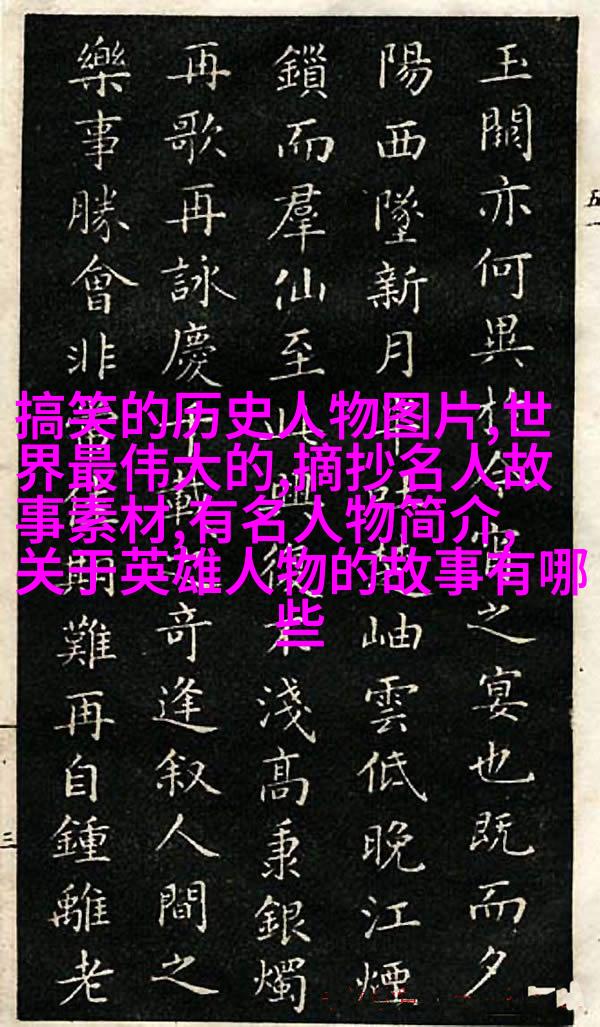 玉關亦何異於今宵之宴也既而夕
陽西墜新月楚岫雲低晚江煙
鎖而羣仙至此興復不淺高秉銀燭
再歌再詠慶千載奇逢叙人間之
樂事勝會非常佳期難再自鍾離老
搞笑的历史人物图片,世
界最伟大的,摘抄名人故
事素材,有名人物简介,
关于英雄人物的故事有哪
些
五一
三